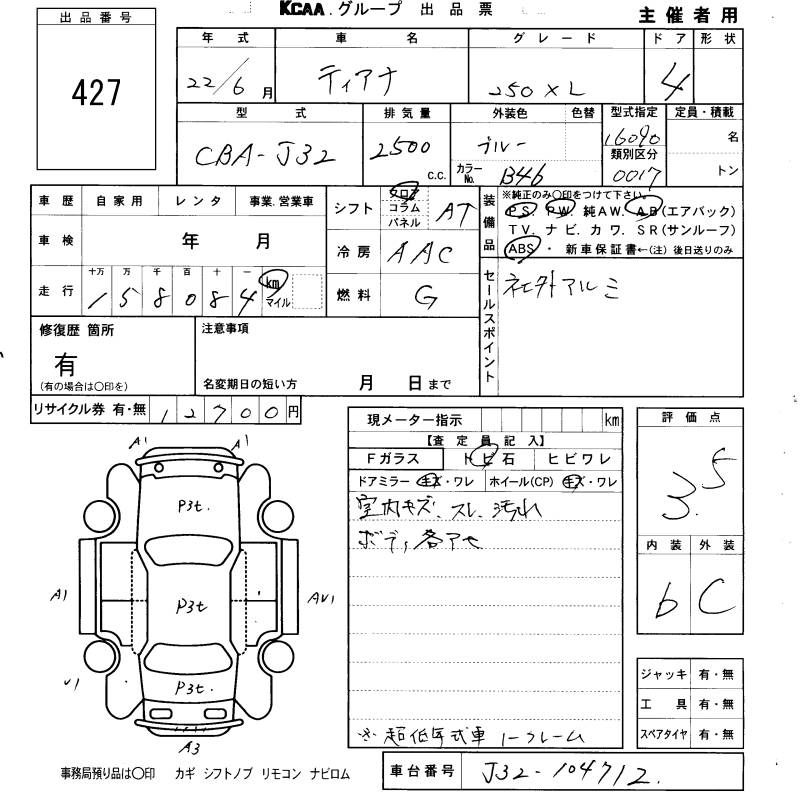 KCAA.グループ 出品票
主催者用
出品番号
427
年式 車名 グレード ドア 形状
22/6月 ティアナ 250XL 4
型式 排気量 外装色 色替 型式指定 定員・積載
CBA-J32 2500 c.c. ブルー 16090 名
カラーNo. B46 類別区分 0017 トン
車歴 自家用 レンタ 事業.営業車
車検 年 月
走行 十万 万 千 百 十 一
158084 km マイル
シフト フロア コラム パネル AT
冷房 AAC
燃料 G
装備品
※純正のみ〇印をつけて下さい。
PS. PW. 純AW. AB(エアバック)
TV. ナビ. カワ. SR(サンルーフ)
ABS ・ 新車保証書←(注)後日送りのみ
セールスポイント
社外アルミ
修復歴 箇所
有
(有の場合は〇印を)
注意事項
名変期日の短い方 月 日まで
リサイクル券 有・無 12700円
現メーター指示 km
【査定員記入】
Fガラス トビ石 ヒビワレ
ドアミラー キズ・ワレ ホイール(CP) キズ・ワレ
室内キズ、スレ、汚れ
ボディ各アセ
※超低年式車 1-フレーム
評価点
3.5
内装 外装
b C
ジャッキ 有・無
工具 有・無
スペアタイヤ 有・無
A1 A1
P3t.
A1 P3t AV1
V1 P3t.
A3
事務局預り品は〇印 カギ シフトノブ リモコン ナビロム
車台番号 J32-104712.